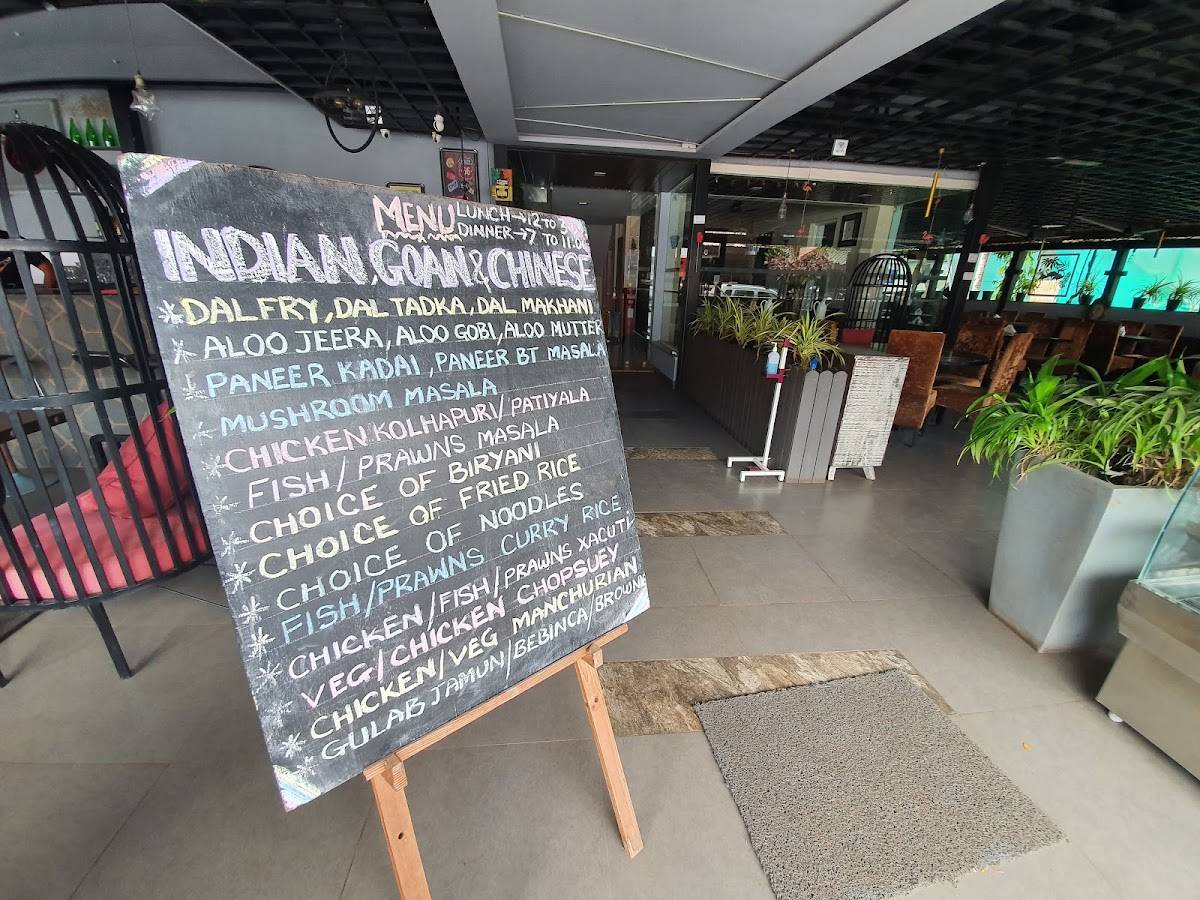 MENU LUNCH→12 TO 3
DINNER→7 TO 11:00
INDIAN, GOAN & CHINESE
DAL FRY, DAL TADKA, DAL MAKHANI
ALOO JEERA, ALOO GOBI, ALOO MUTTER
PANEER KADAI, PANEER BT MASALA
MUSHROOM MASALA
CHICKEN KOLHAPURI/PATIYALA
FISH/PRAWNS MASALA
CHOICE OF BIRYANI
CHOICE OF FRIED RICE
CHOICE OF NOODLES
FISH/PRAWNS CURRY RICE
CHICKEN/FISH/PRAWNS XACUTI
VEG/CHICKEN CHOPSUEY
CHICKEN/VEG MANCHURIAN
GULAB JAMUN/BEBINCA/BROWNIE